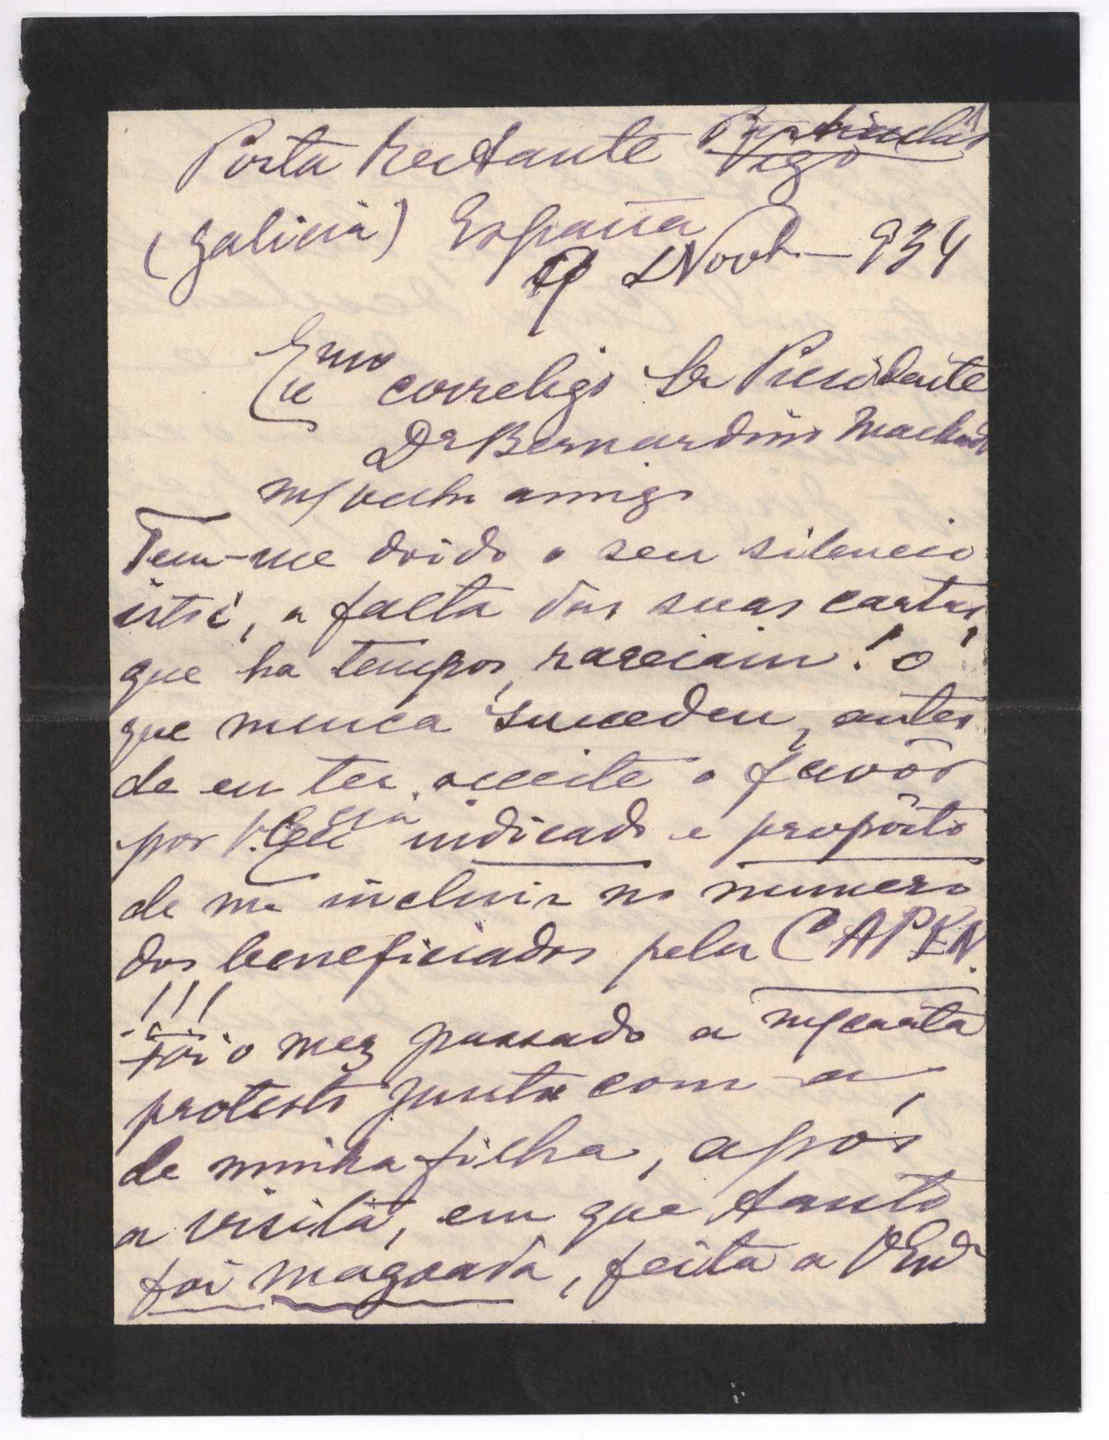 Posta Restante Vigo
(Galicia) España
9 Novb.— 934
Exmo
correligo Sr Presidente
Dr Bernardino Machado
m/ velho amigo
Tem-me doido o seu silencio
isto é, a falta das suas cartas,
que ha tempos, rareiam! o
que nunca sucedeu, antes
de eu ter aceite o favôr
por V. Excia indicado e propôsto
de me incluir no numero
dos beneficiados pela CAPEN.
!!!
Foi o mez passado a m/ carta
protesto junta com a
de minha filha, após
a visita, em que tanto
foi magoada, feita a